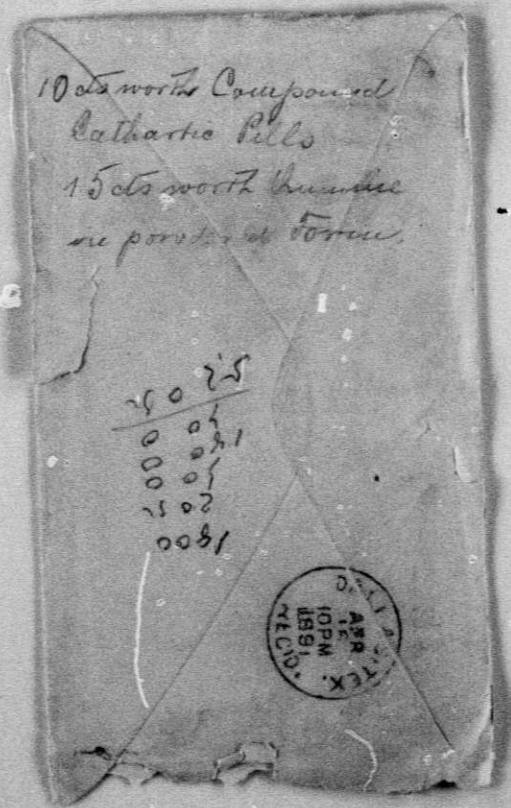 10 cts worth Compound
Cathartic Pills
15 cts worth Quinine
in powdered Form.
1800
20 5
5 0 0
15 0 0
5 0
52 0 5
DALLAS, TEX.
APR
10PM
1891
REC'D.